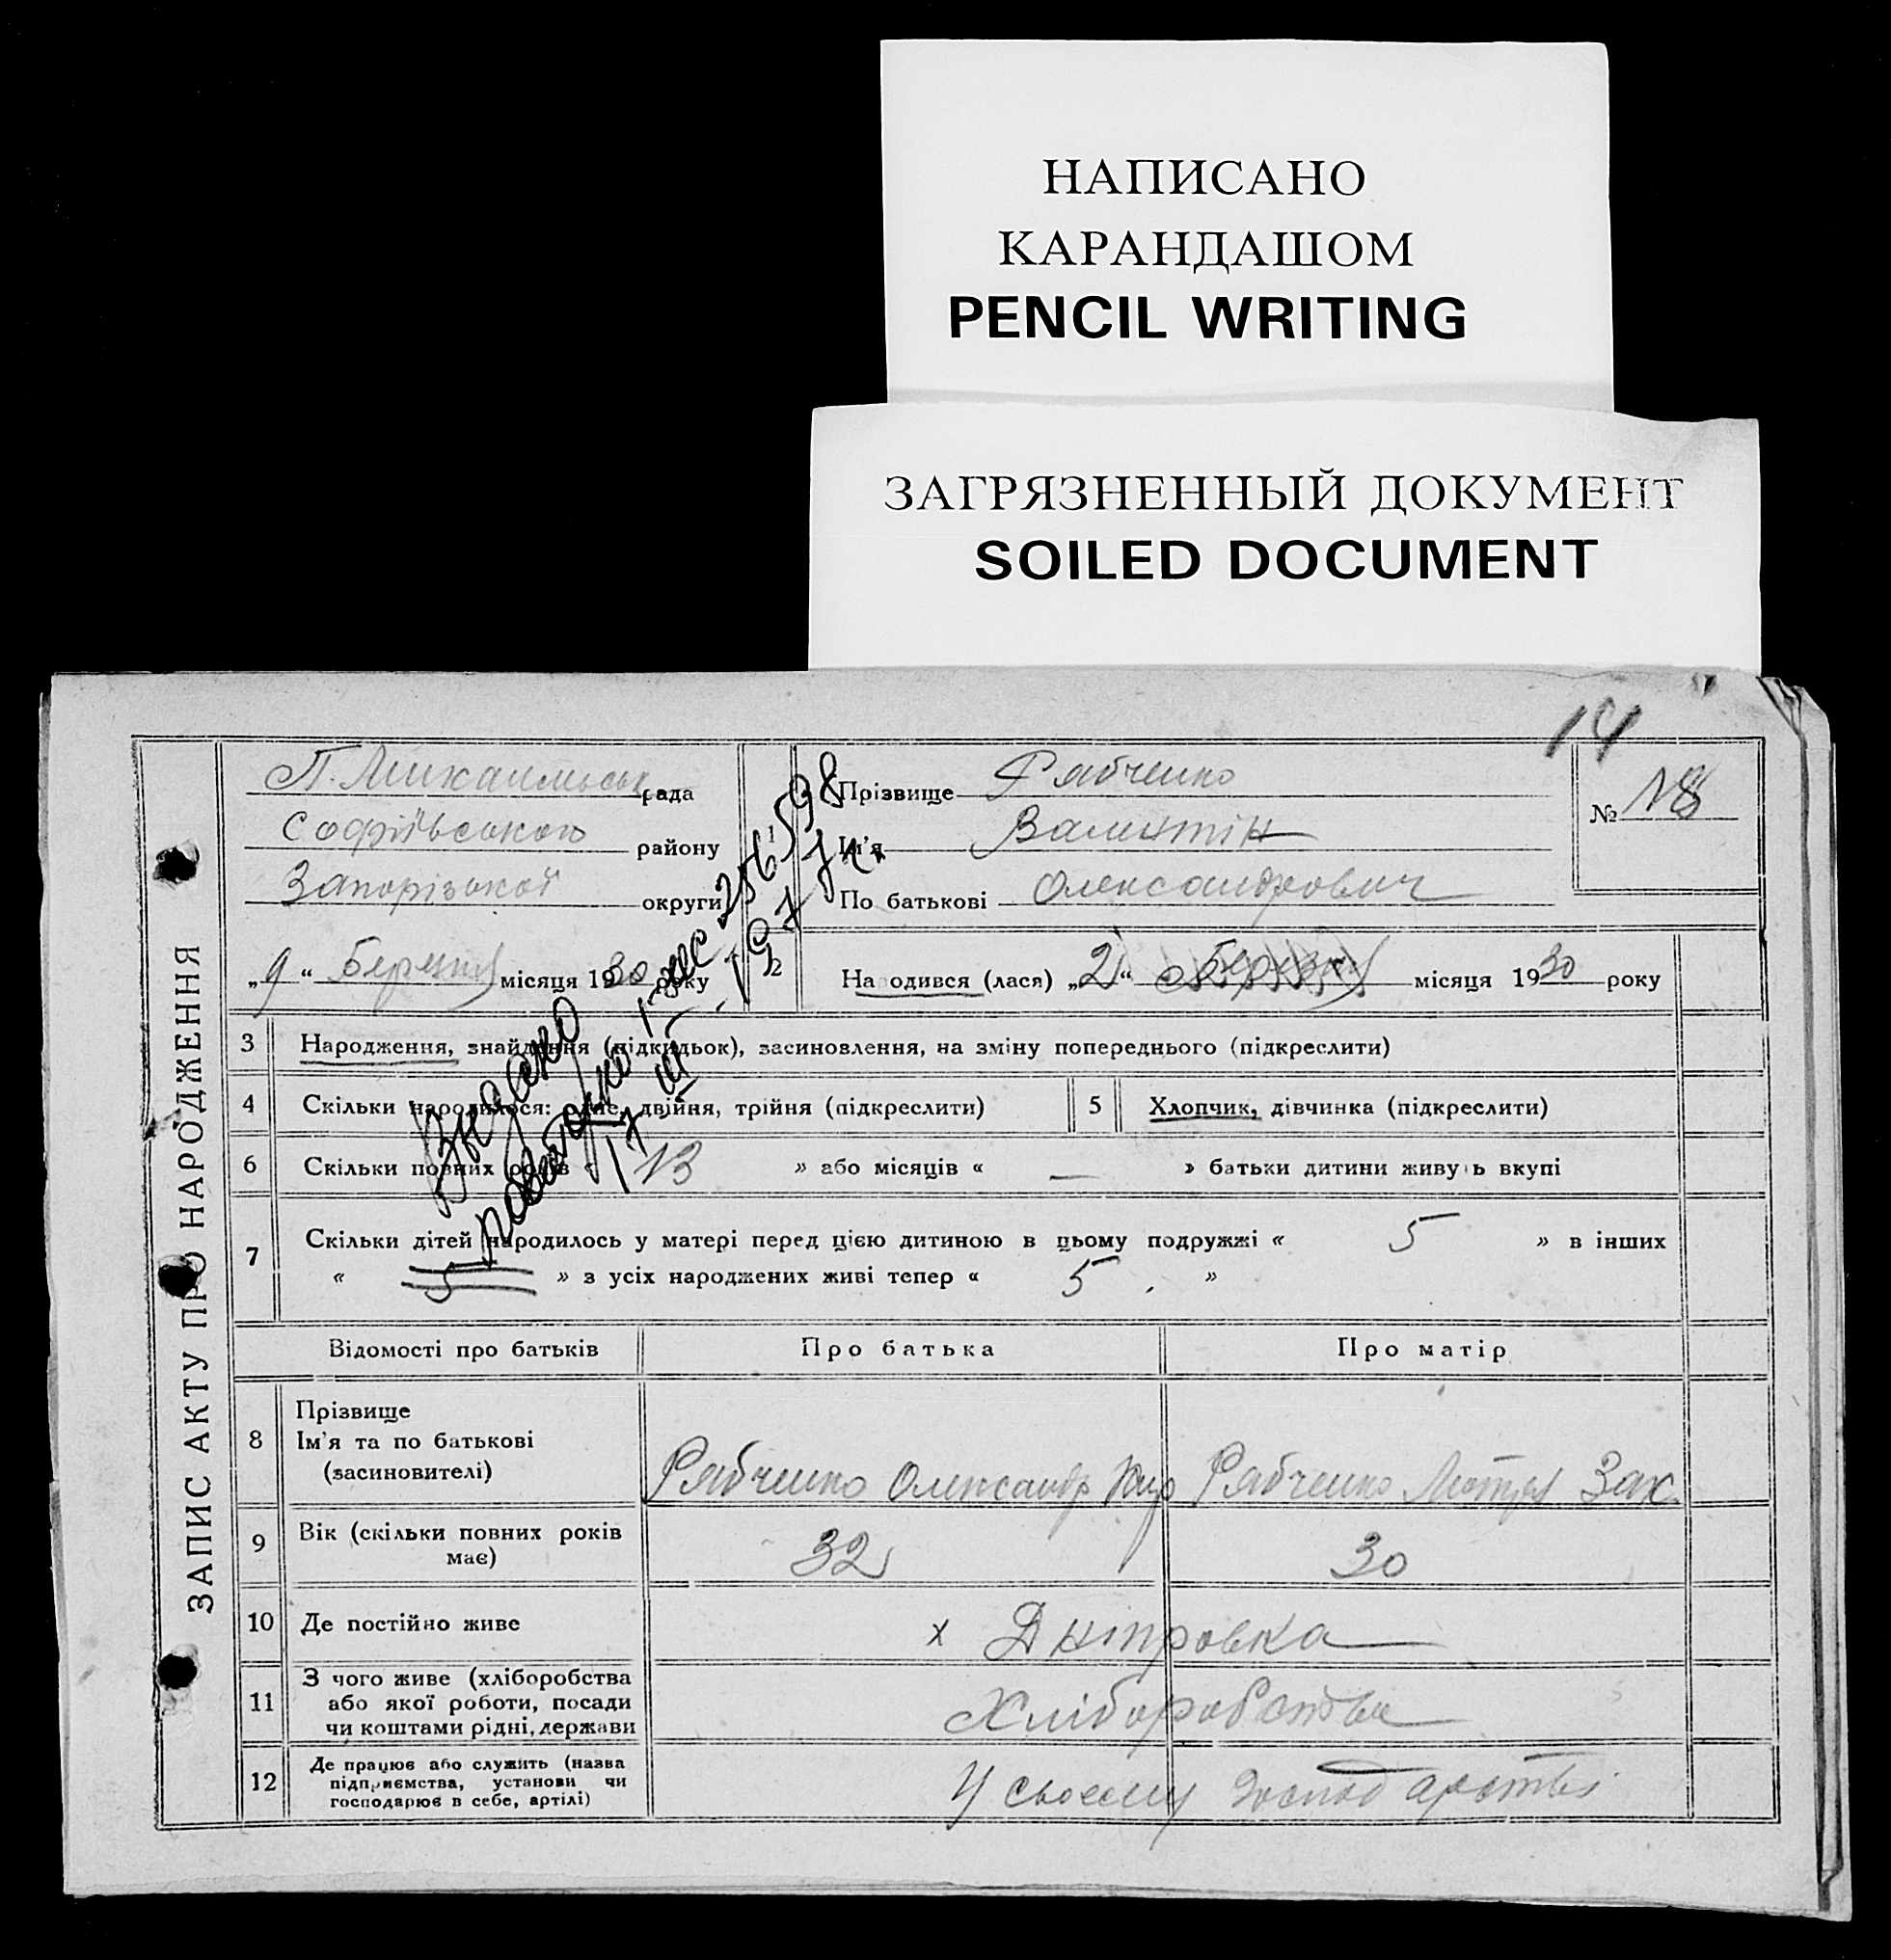 НАПИСАНО
КАРАНДАШОМ
PENCIL WRITING
ЗАГРЯЗНЕННЫЙ ДОКУМЕНТ
SOILED DOCUMENT
14
ЗАПИС АКТУ ПРО НАРОДЖЕННЯ
П. Михаильськ рада
Софіївського району
Запорізької округи
1
Прізвище Рябченко
Ім'я Валинтін
По батькові Олександрович
№ 18
„9“ березня місяця 1930 року
2
Народився (лася) „2“ березня місяця 1930 року
Видано
повторно 1-ЖС 256598
17 III-1977г.
3 Народження, знайдення (підкидьок), засиновлення, на зміну попереднього (підкреслити)
4 Скільки народилося: одне, двійня, трійня (підкреслити)
5 Хлопчик, дівчинка (підкреслити)
6 Скільки повних років « 13 » або місяців « — » батьки дитини живуть вкупі
7 Скільки дітей народилось у матері перед цією дитиною в цьому подружжі « 5 » в інших
« 5 » з усіх народжених живі тепер « 5 »
Відомості про батьків
Про батька
Про матір
8 Прізвище
Ім'я та по батькові
(засиновителі)
Рябченко Олександр
Рябченко Мотря Зах.
9 Вік (скільки повних років
має)
32
30
10 Де постійно живе
х Дніпровка
11 З чого живе (хліборобства
або якої роботи, посади
чи коштами рідні, держави
Хліборобства
12 Де працює або служить (назва
підприємства, установи чи
господарює в себе, артілі)
У своему господарстві